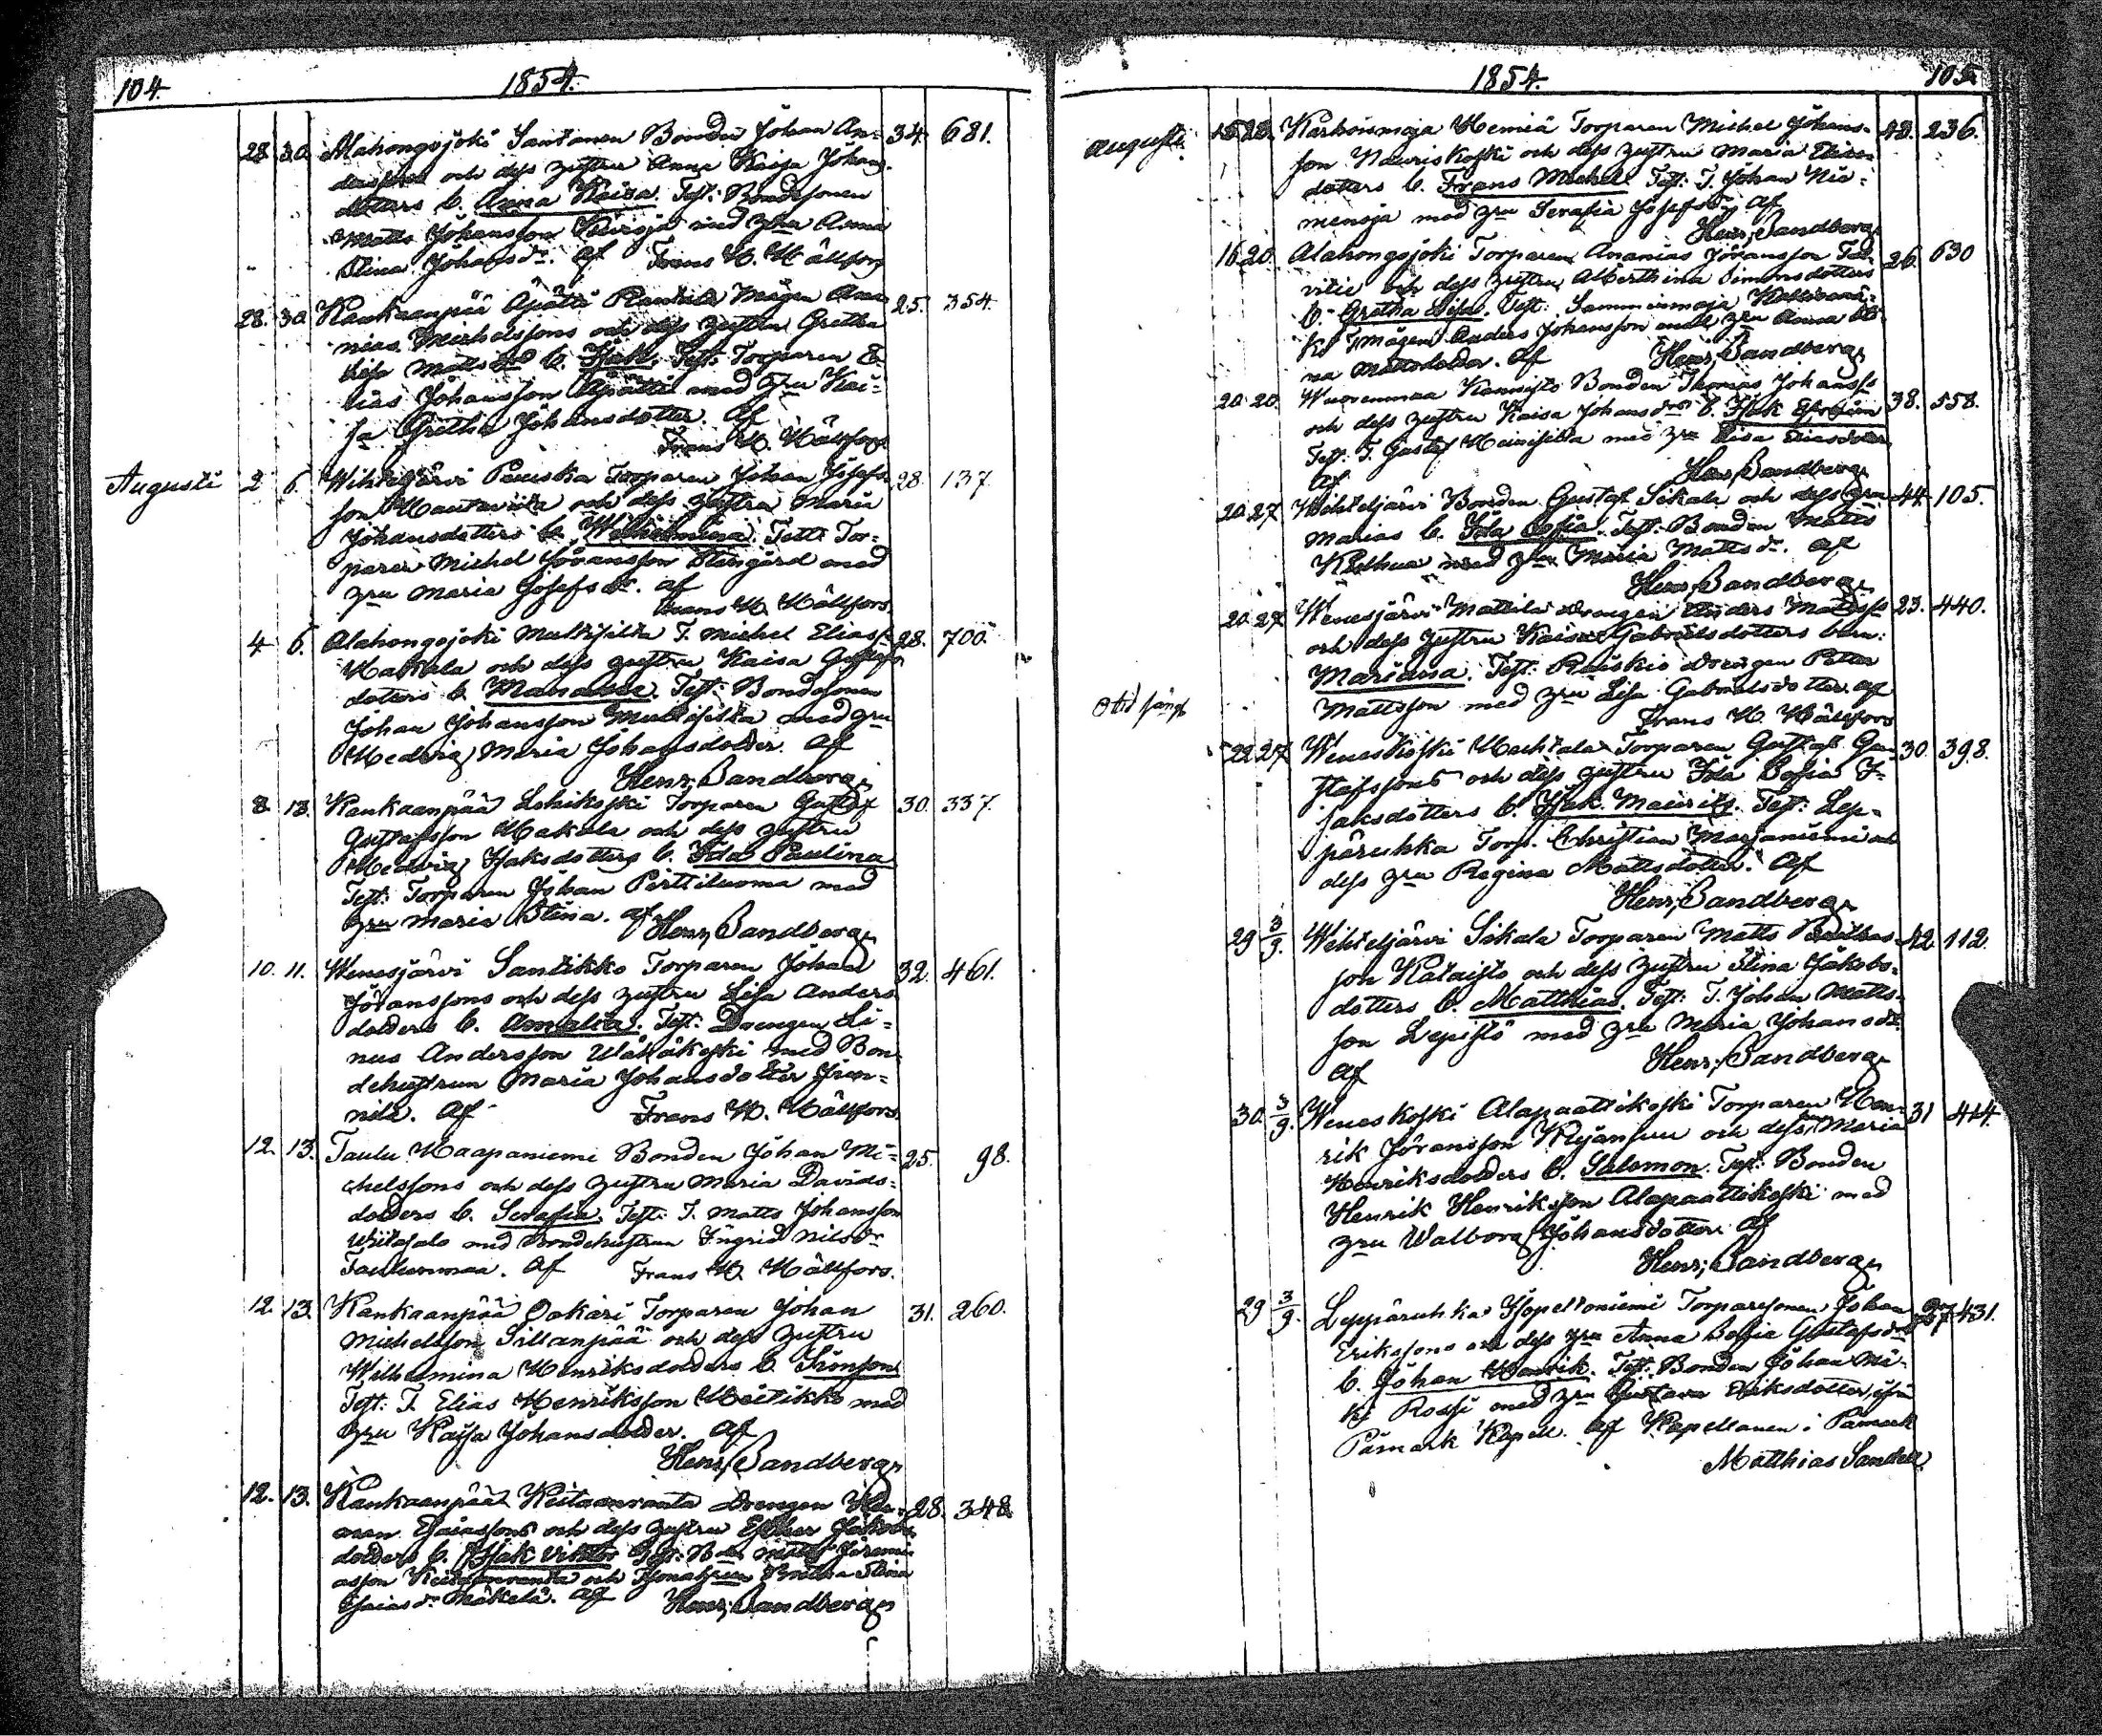 104.
1854.
28 30. Alahongojoki Santanen Bonden Johan An- 34. 681.
derssons och dess hustru Anna Kaisa Johans-
dotters b. Anna Kaisa. Test: Bondesonen
Matts Johansson med hru Anna
Stina Johansdr. Af Frans H. Hällfors
28. 30. Kankaanpää Apätti Rantala Mågen Ana- 25. 354.
nias Michelssons och dess hustru Gretha
Lisa Mattsdrs b. Isak. Test: Torparen E-
lias Johansson Apätti med hru Kai-
sa Gretha Johansdotter. Af
Frans H. Hällfors
Augusti 2 6. Wihteljärvi Peuska Torparen Johan Josefs- 28. 137.
son och dess hustru Maria
Johansdotters b. Wilhelmina. Test: Tor-
paren Michel Jöransson Stengård med
hru Maria Josefsdr. af
Frans H. Hällfors
4 6. Alahongojoki Multisilta T. Michel Eliass. 28. 700.
Hakala och dess hustru Kaisa Gustafs
doters b. Manasse. Test: Bondesonen
Johan Johansson Multisilta med hru
Hedvig Maria Johansdotter. Af
Henr. Sandberg
8. 13. Kankaanpää Lohikoski Torparen Gustaf 30. 337.
Gustafsson Hakala och dess hustru
Hedvig Isaksdotters b. Ida Paulina
Test: Torparen Johan Pirttiluoma med
hru Maria Stina. af Henr. Sandberg
10. 11. Wenesjärvi Santikko Torparen Johan 32. 461.
Jöranssons och dess hustru Lisa Anders
dotters b. Amalia. Test: Drengen Li-
nus Andersson med Bon-
dehustrun Maria Johansdotter
nilä. Af Frans H. Hällfors
12. 13. Taulu Haapaniemi Bonden Johan Mi- 25. 98.
chelssons och dess hustru Maria Davids-
dotters b. Serafia. Test: T. Matts Johansson
Wiitasalo med Bondehustrun Ingrid Nilsdr
Taulunmaa. Af Frans H. Hällfors.
12. 13. Kankaanpää Ookari Torparen Johan 31. 260.
Michelsson Sillanpää och dess hustru
Wilhelmina Henriksdotters b. Simson
Test: T. Elias Henriksson Heitikko med
hru Kaisa Johansdotter. Af
Henr. Sandberg
12. 13. Kankaanpää Keitaanranta Drengen Her- 28. 348.
man Esaiassons och dess hustru Esther Jakobs
dotters b. Isak Viktor Test: Bden Jeremi
asson Keitaanranta och Stina
Esaiasdr Mäkelä. Af Henr. Sandberg
1854.
105
Augusti. 15 20. Karhoismaja Hemiä Torparen Michel Johans- 43. 236.
son Nauriskoski och dess hustru Maria Elias-
dotters b. Frans Michel. Test: T. Johan Nie-
mensja med hru Serafia Josefsdr. Af
Henr. Sandberg
16 20. Alahongojoki Torparen Ananias Jöransson 26. 630
vitie och dess hustru Alberthina Simonsdotters
b. Gretha Lisa. Test. Samminmaja
ki Mågen Anders Johansson med hru Anna Sti-
na Mattsdotter. Af Henr. Sandberg
20. 20. Wuorenmaa Kannisto Bonden Thomas Johanss. 38. 558.
och dess hustru Kaisa Johansdrs b. Isak Efraim
Test: T. Gustaf Heinisilta med hru Lisa Eliasdotter
Af Henr. Sandberg
20 27 Wihteljärvi Bonden Gustaf Sikala och dess hru 44. 105.
Marias b. Ida Sofia. Test: Bonden Matts
med hru Maria Mattsdr. Af
Henr. Sandberg
20. 27. Wenesjärvi Mattila Drengen Anders Mattss. 23. 440.
och dess hustru Kaisa Gabrielsdotters barn:
Mariana. Test: Raiskio Drengen Petter
Mattsson med hru Lisa Gabrielsdotter. af
Frans H. Hällfors
22 27 Weneskoski Torparen Gustaf Gu- 30. 398.
stafssons och dess hustru Ida Sofia I-
saksdotters b. Isak Maurits. Test: Lep-
päruhka Torp. Christian Marjaniemi och
dess hru Regina Mattsdotter. Af
Henr. Sandberg
29 3/9. Wihteljärvi Sikala Torparen Matts 42. 112.
son Kataisto och dess hustru Stina Jakobs-
dotters b. Matthias. Test: T. Johan Matts-
son Lepistö med hru Maria Johansdr.
Af Henr. Sandberg
30. 3/9. Weneskoski Alapaattikoski Torparen Hen- 31 414.
rik Jöransson och dess hru Maria
Henriksdotters b. Salomon. Test: Bonden
Henrik Henriksson Alapaattikoski med
hru Walborg Johansdotter. Af
Henr. Sandberg
29 3/9. Leppäruhka Torparesonen Johan 431.
Erikssons och dess hru Anna Sofia Gustafsdrs
b. Johan Henrik. Test: Bonden Johan Mi-
ki Rossi med hru Gustava Eriksdotter, ifrån
Påmark Kapell. Af Kapellanen i Påmark
Matthias Sandell